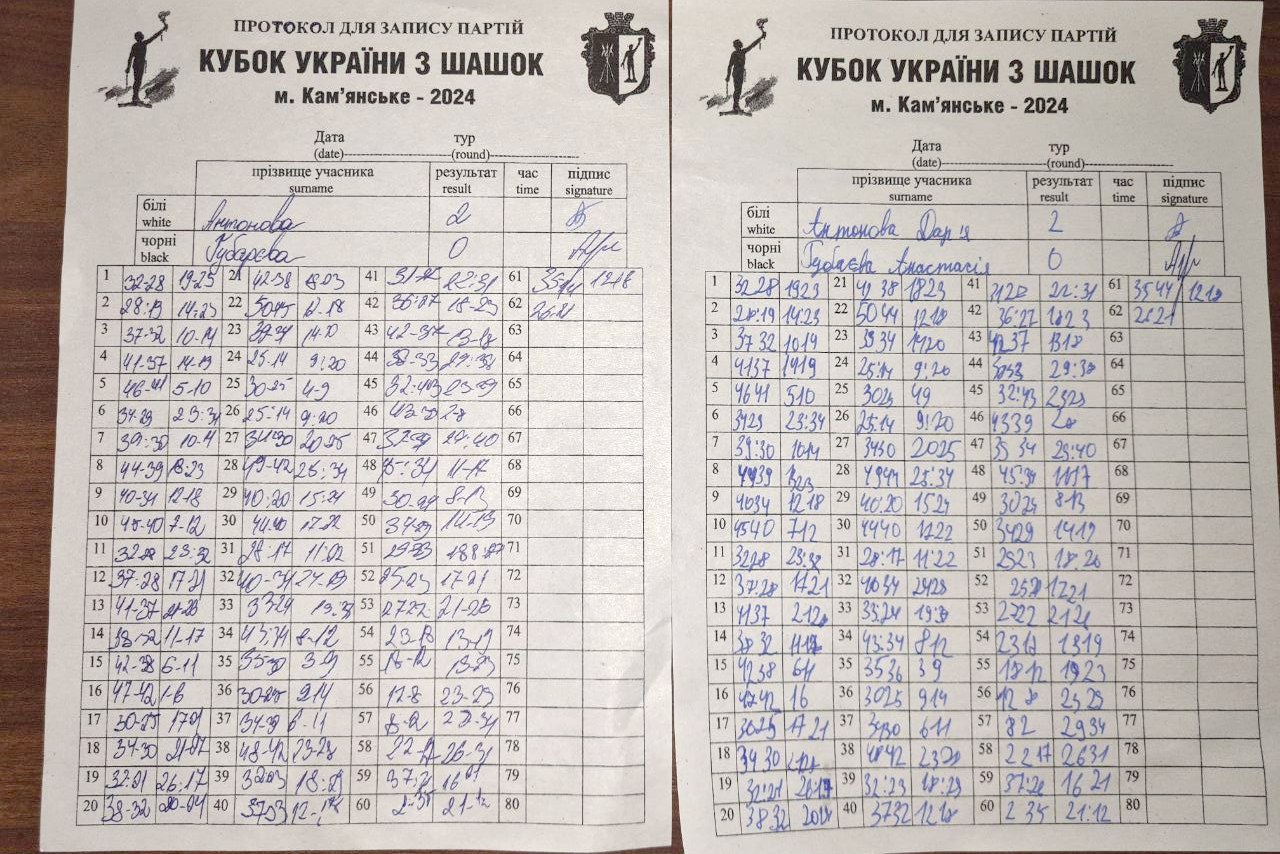 ПРОТОКОЛ ДЛЯ ЗАПИСУ ПАРТІЙ
КУБОК УКРАЇНИ З ШАШОК
м. Кам'янське - 2024
Дата тур
(date) (round)
прізвище учасника результат час підпис
surname result time signature
білі
white Антонова 2
чорні
black 0
1 32-28 19-23 21 42-38 18-23 41 22:31 61 35-44 12-18
2 28:19 14:23 22 50-45 12-18 42 36:27 18-23 62 26-21
3 37-32 10-14 23 39-34 14-20 43 42-37 13-18 63
4 41-37 14-19 24 25:14 9:20 44 38-33 29:38 64
5 46-41 5-10 25 30-25 4-9 45 32:43 23-29 65
6 34-29 23:34 26 25:14 9:20 46 66
7 39:30 10-14 27 34-30 20-25 47 29:40 67
8 44-39 18-23 28 49-42 25:34 48 11-17 68
9 40-34 12-18 29 40:20 15:24 49 30-24 8-13 69
10 45-40 7-12 30 44-40 17-22 50 34-29 14-19 70
11 32-28 23:32 31 28:17 11:22 51 71
12 37:28 17-21 32 40-34 52 17-21 72
13 41-37 33 33-24 53 27-22 21-26 73
14 38-32 11-17 34 43:34 8-12 54 23-18 13-19 74
15 42-38 6-11 35 3-9 55 18-12 19-23 75
16 47-42 1-6 36 30-25 9-14 56 12-8 23-29 76
17 30-25 17-21 37 34-30 6-11 57 8-2 29-34 77
18 34-30 38 48-42 23-28 58 22-17 26-31 78
19 32:21 26:17 39 32:23 18:29 59 37:26 16-21 79
20 38-32 20-24 40 60 2-35 21-12 80
ПРОТОКОЛ ДЛЯ ЗАПИСУ ПАРТІЙ
КУБОК УКРАЇНИ З ШАШОК
м. Кам'янське - 2024
Дата тур
(date) (round)
прізвище учасника результат час підпис
surname result time signature
білі
white Антонова Дар'я 2
чорні
black Анастасія 0
1 3228 1923 21 4238 1823 41 22:31 61 3544 1218
2 28:19 14:23 22 5044 1218 42 36:27 1823 62 2621
3 3732 1014 23 3934 1420 43 4237 1318 63
4 4137 1419 24 25:14 9:20 44 29:38 64
5 4641 510 25 3025 49 45 32:43 2329 65
6 3429 23:34 26 25:14 9:20 46 4339 66
7 39:30 1014 27 3430 2025 47 29:40 67
8 4439 28 4944 25:34 48 45:34 1117 68
9 4034 1218 29 40:20 1524 49 3024 813 69
10 4540 712 30 4440 1722 50 3429 1419 70
11 3228 23:32 31 28:17 11:22 51 2923 18:20 71
12 37:28 1721 32 4034 2429 52 1721 72
13 4137 33 33:24 53 2722 2126 73
14 3832 34 43:34 812 54 2318 1319 74
15 4238 611 35 39 55 1812 1923 75
16 4742 16 36 3025 914 56 128 2329 76
17 3025 1721 37 3430 611 57 82 2934 77
18 3430 38 4842 58 2217 2631 78
19 32:21 26:17 39 32:23 18:29 59 37:26 1621 79
20 3832 2024 40 3732 1218 60 235 21:12 80